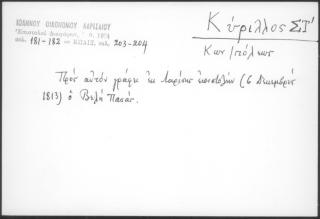 ΙΩΑΝΝΟΥ ΟΙΚΟΝΟΜΟΥ ΛΑΡΙΣΑΙΟΥ
Ἐπιστολαὶ Διαφόρων, 1964
σελ. 181-182 σελ. 203-204
Κύριλλος ΣΤ'
Κων/πόλεως
Πρὸς αὐτὸν γράφει ἐκ Λαρίσης ἐπιστολὴν (6 Δεκεμβρίου
1813) ὁ Βελῆ Πασᾶς.